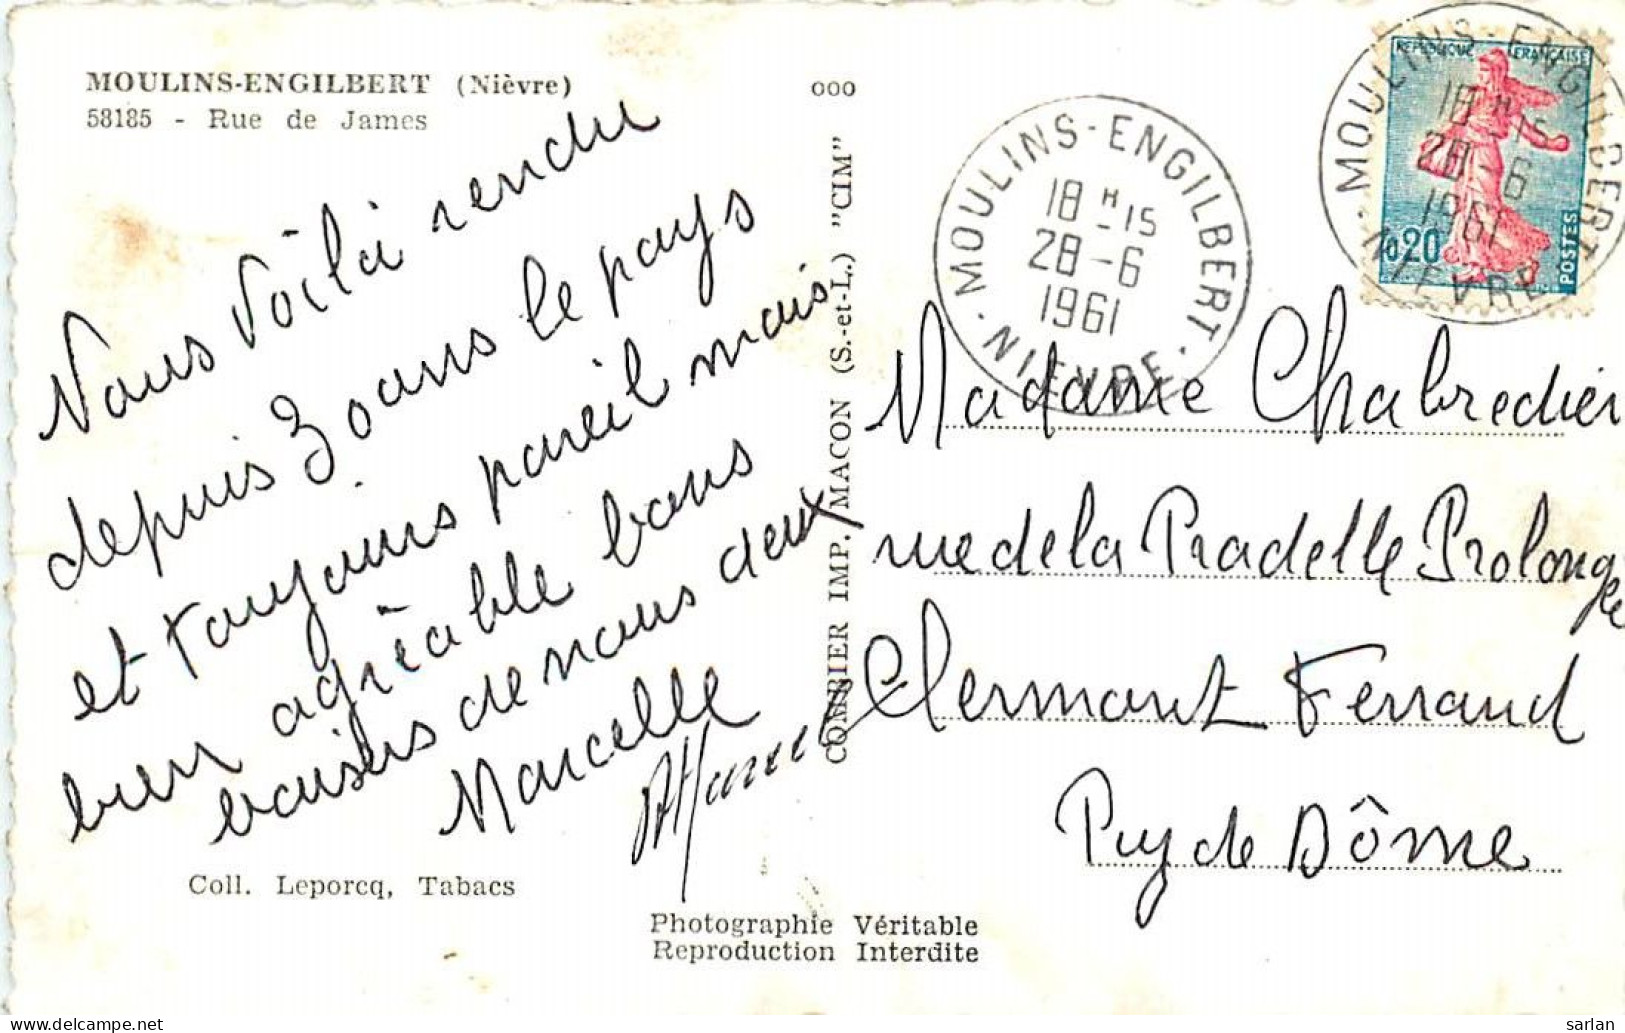 MOULINS-ENGILBERT (Nièvre)
58185 - Rue de James
Nous Voilà rendu
depuis 30 ans le pays
et toujours pareil mais
bien agréable bons
baisers de nous deux
Marcelle
Coll. Leporcq, Tabacs
ooo
COMBIER IMP. MACON (S.-et-L.) "CIM"
Photographie Véritable
Reproduction Interdite
MOULINS-ENGILBERT
18 H 15
28-6
1961
NIEVRE
REPUBLIQUE FRANÇAISE
0,20
POSTES
MOULINS-ENGILBERT
18 H 15
28-6
1961
NIEVRE
Madame Chabredier
rue de la Pradelle Prolongée
Clermont Ferrand
Puy de Dôme
delcampe.net
sarlan